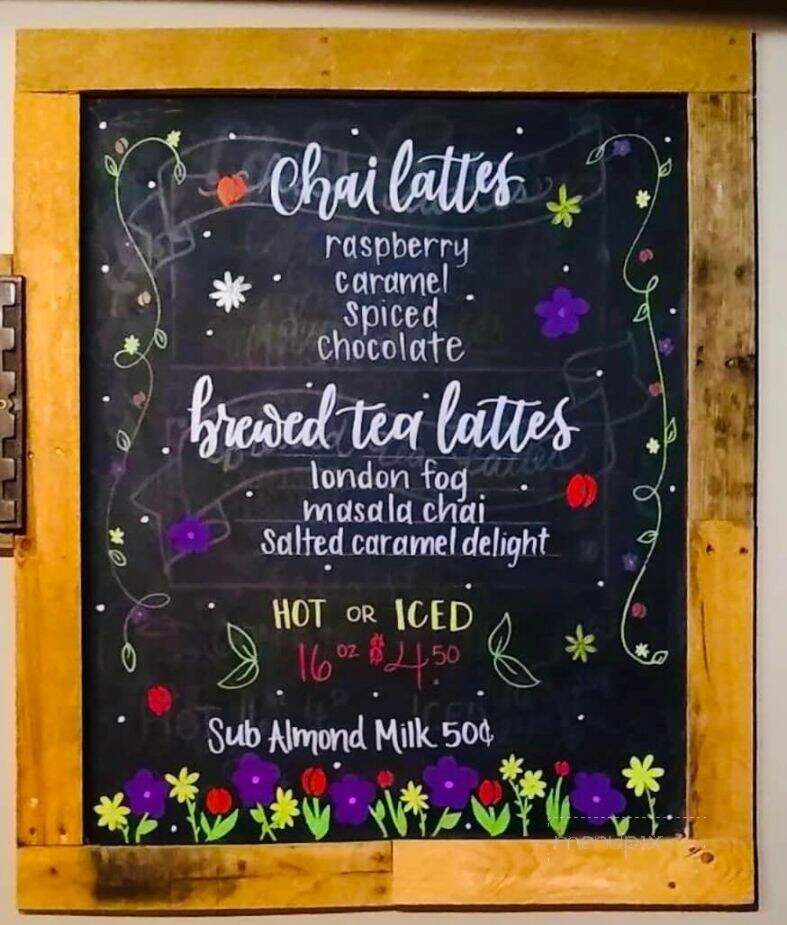 Chai lattes
raspberry
caramel
spiced
chocolate
brewed tea lattes
london fog
masala chai
Salted caramel delight
HOT OR ICED
16 oz $4.50
Sub Almond Milk 50¢
menupix